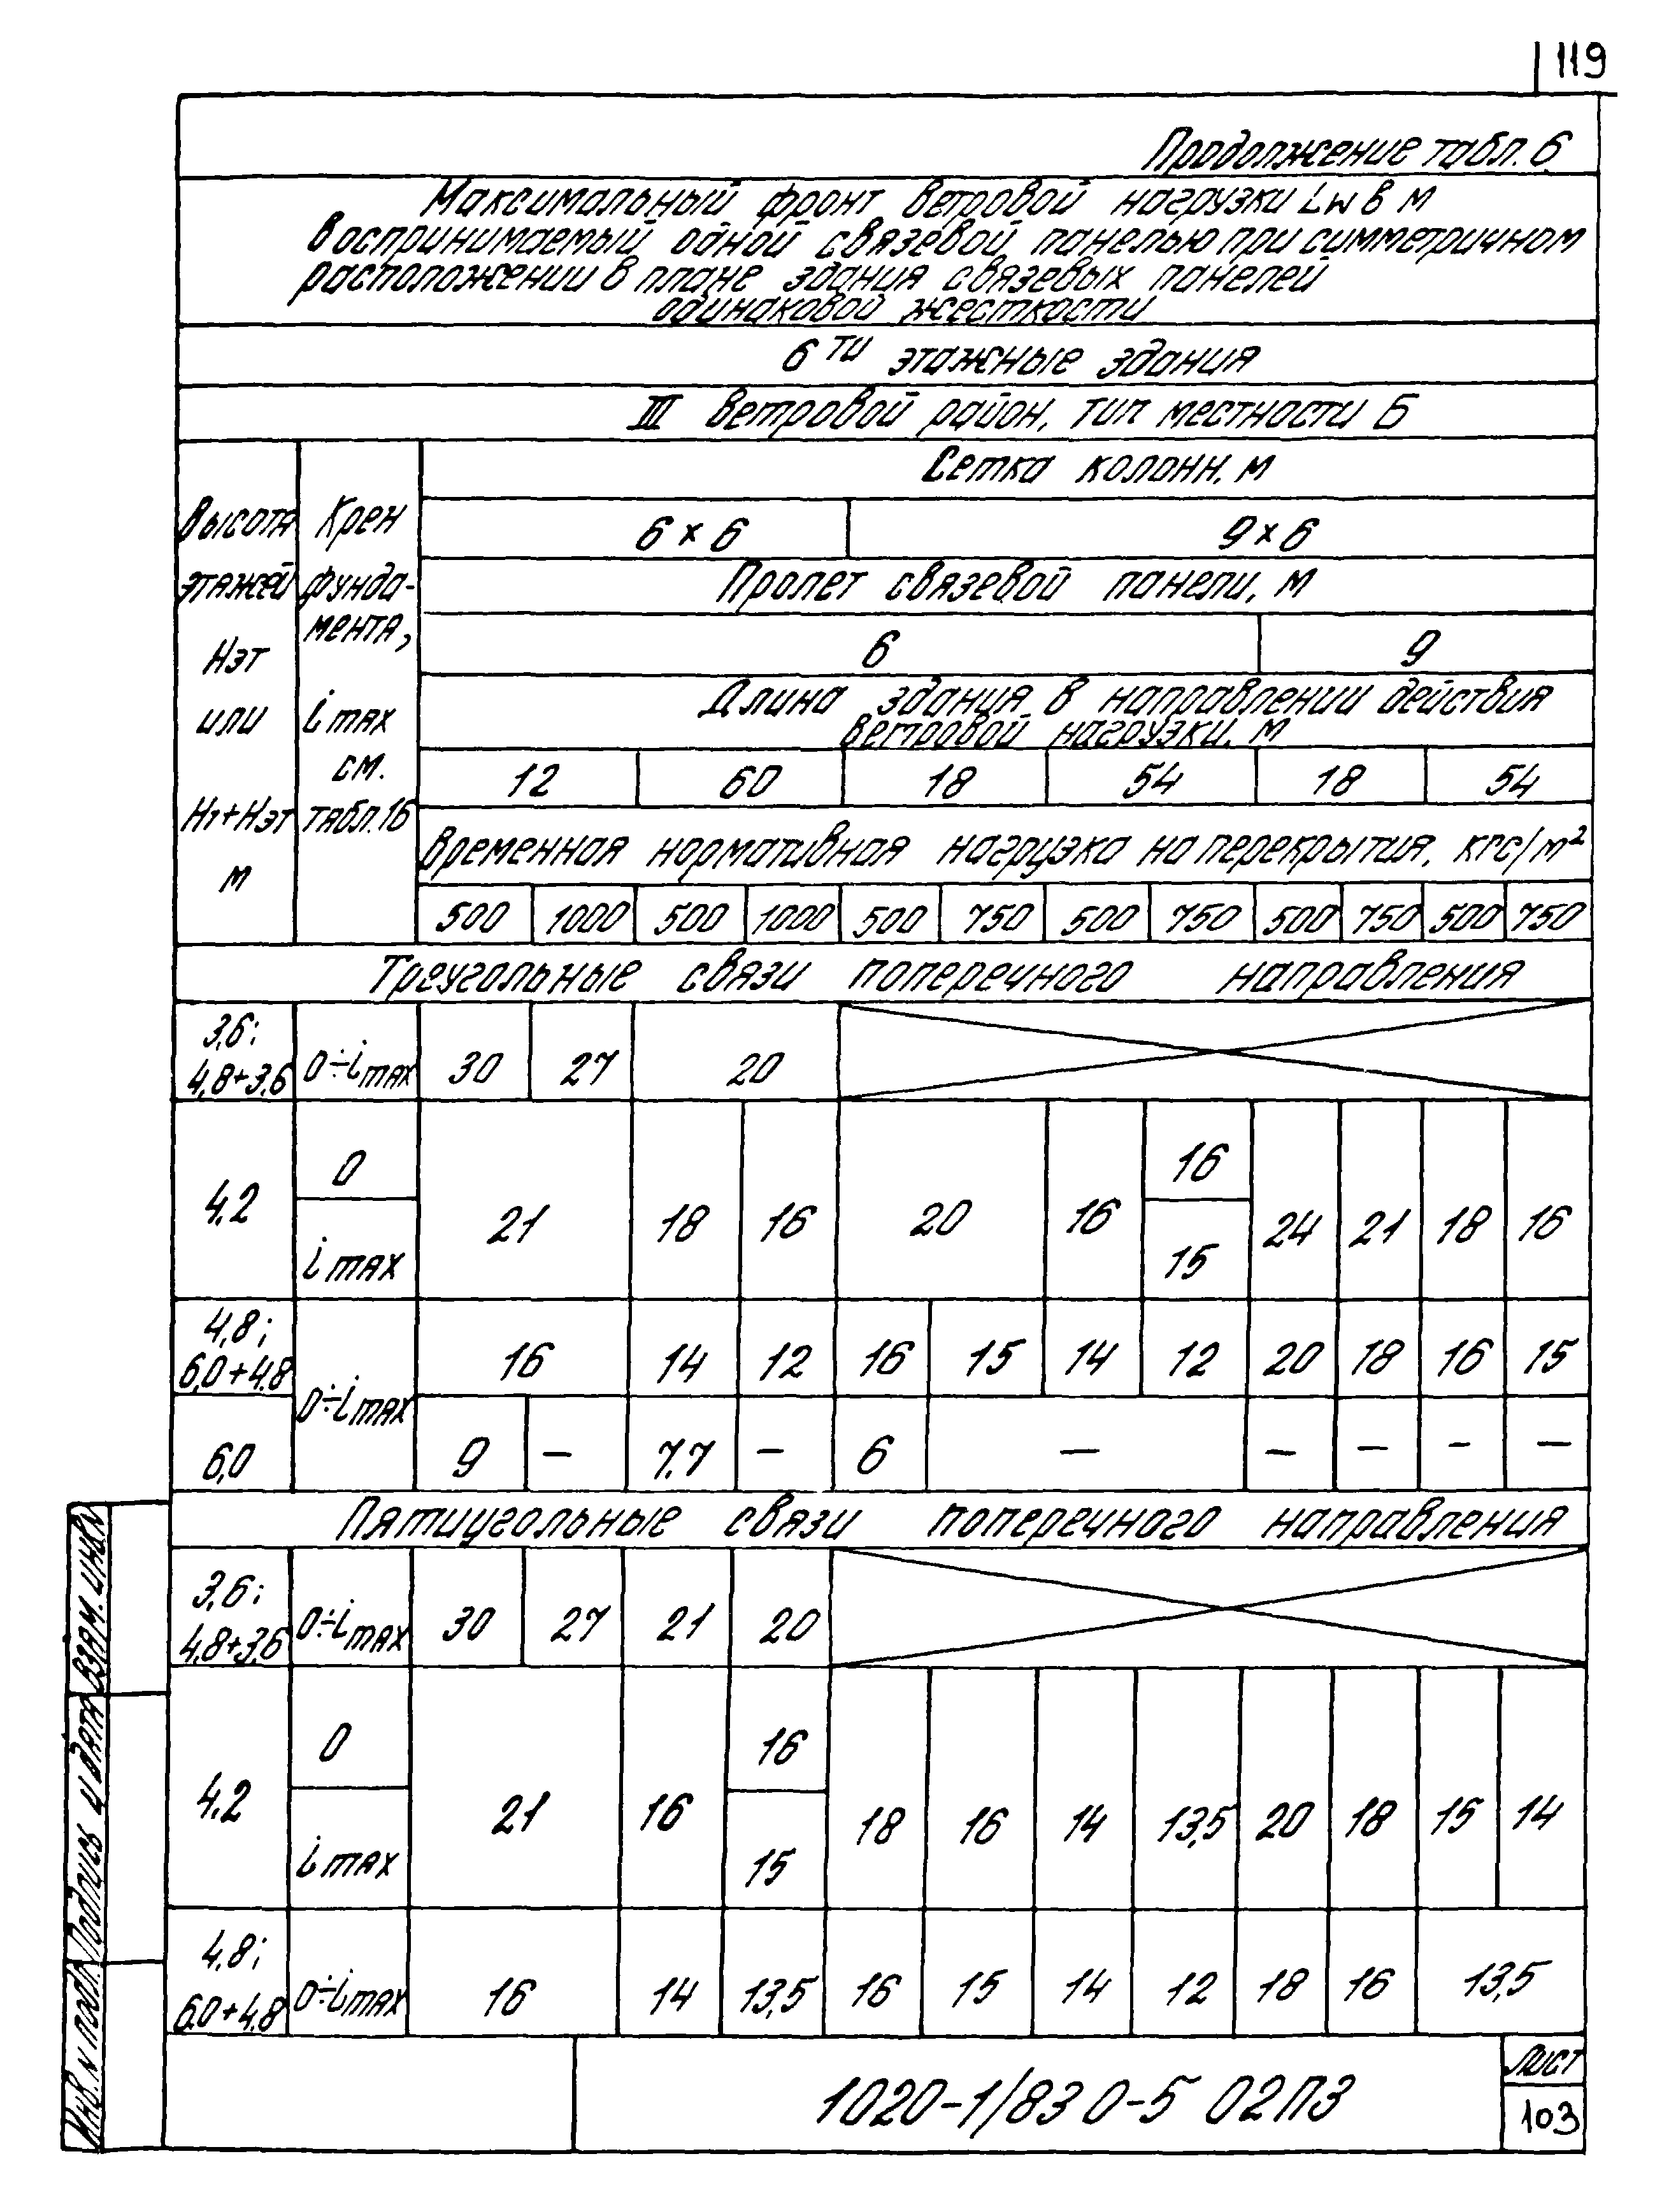 119
Продолжение табл. 6
Максимальный фронт ветровой нагрузки Lw в м
воспринимаемый одной связевой панелью при симметричном
расположении в плане здания связевых панелей
одинаковой жесткости
6ти этажные здания
III ветровой район, тип местности Б
Высота этажей Нэт или Н1+Нэт м
Крен фунда-мента, i max см. табл.16
Сетка колонн, м
6×6 9×6
Пролет связевой панели, м
6 9
Длина здания в направлении действия
ветровой нагрузки, м
12 60 18 54 18 54
Временная нормативная нагрузка на перекрытия, кгс/м²
500 1000 500 1000 500 750 500 750 500 750 500 750
Треугольные связи поперечного направления
3,6; 4,8+3,6 0÷imax 30 27 20
4,2 0 21 18 16 20 16 16 24 21 18 16
i max 15
4,8; 6,0+4,8 0÷imax 16 14 12 16 15 14 12 20 18 16 15
6,0 9 – 7.7 – 6 – – – – –
Пятиугольные связи поперечного направления
3,6; 4,8+3,6 0÷imax 30 27 21 20
4.2 0 21 16 16 18 16 14 13,5 20 18 15 14
i max 15
4,8; 6.0+4.8 0÷imax 16 14 13,5 16 15 14 12 18 16 13,5
Взам. инв. N
Подпись и дата
Инв. N подл.
1020-1/83 0-5 02ПЗ
Лист
103